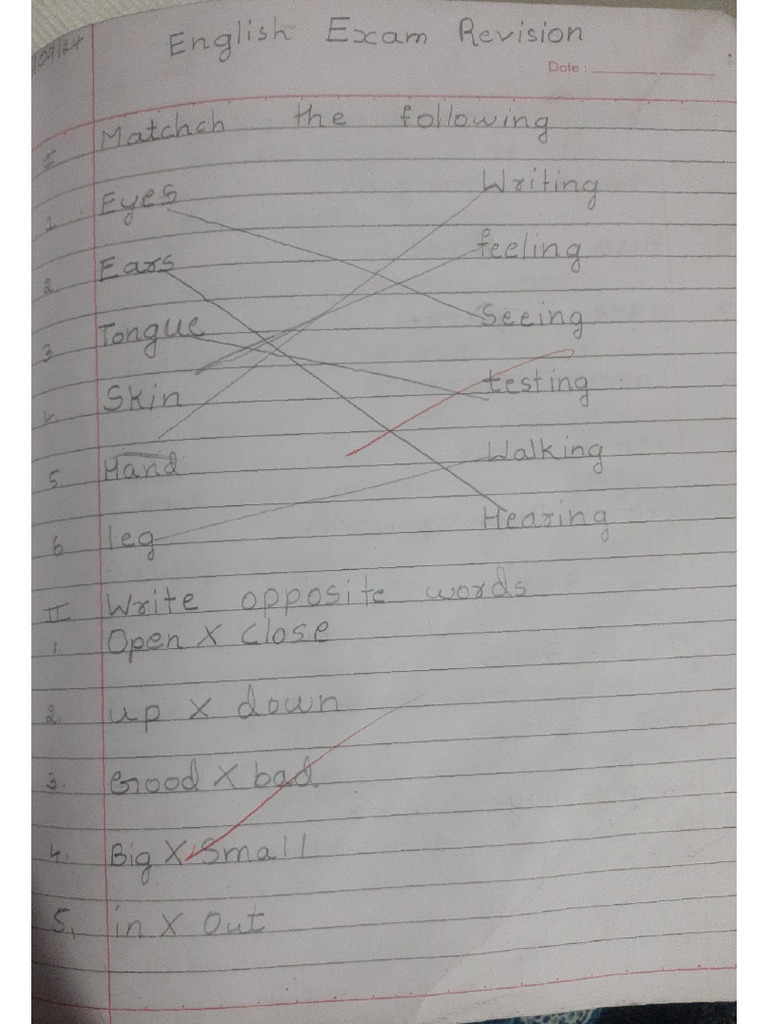 English Exam Revision
Date :
I Matchch the following
1. Eyes Writing
2. Ears feeling
3. Tongue Seeing
4. Skin testing
5. Hand Walking
6 leg Hearing
II Write opposite words
1. Open X Close
2. up X down
3. Good X bad
4. Big X Small
5. in X Out